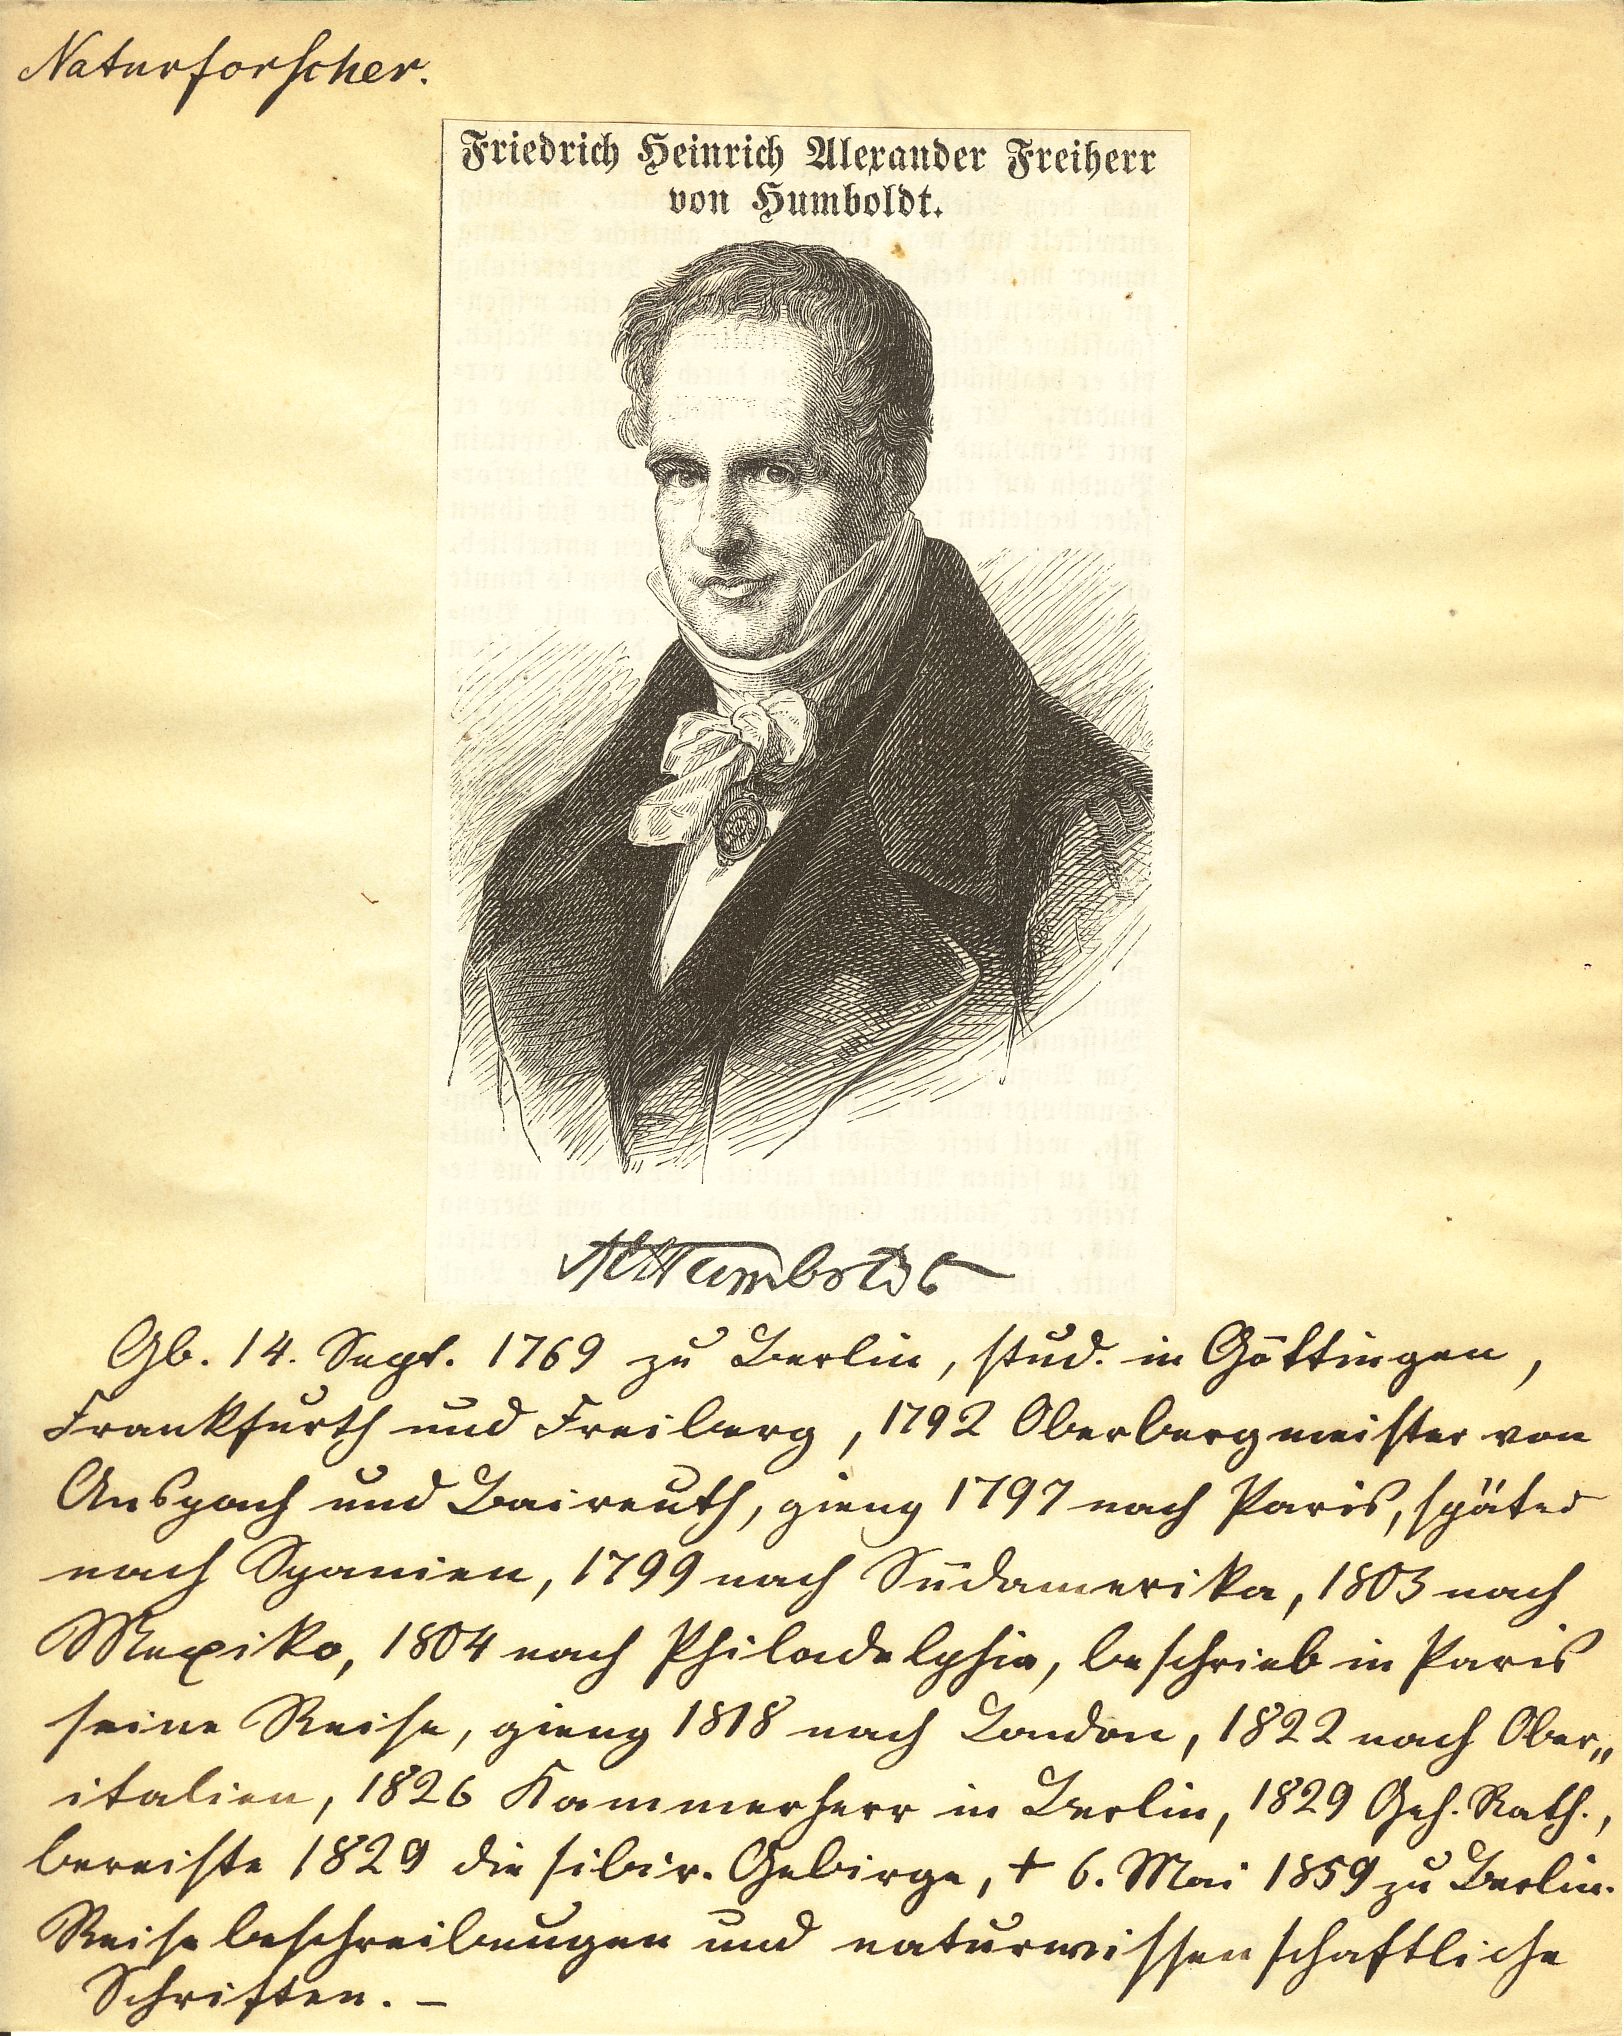 Naturforscher.
Friedrich Heinrich Alexander Freiherr
von Humboldt.
AlHumboldt
Gb. 14. Sept. 1769 zu Berlin, stud. in Göttingen,
Frankfurth und Freiberg, 1792 Oberbergmeister von
Anspach und Baireuth, gieng 1797 nach Paris, später
nach Spanien, 1799 nach Südamerika, 1803 nach
Mexiko, 1804 nach Philadelphia, beschrieb in Paris
seine Reise, gieng 1818 nach London, 1822 nach Ober„
italien, 1826 Kammerherr in Berlin, 1829 Geh. Rath.,
bereiste 1829 die sibir. Gebirge, † 6. Mai 1859 zu Berlin.
Reisebeschreibungen und naturwissenschaftliche
Schriften. –